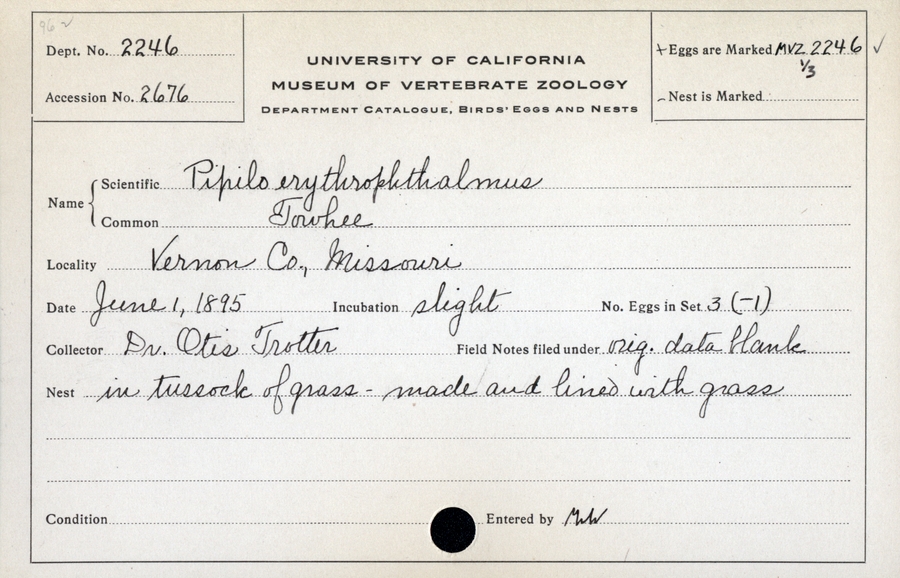 96 ✓
Dept. No. 2246
Accession No. 2676
UNIVERSITY OF CALIFORNIA
MUSEUM OF VERTEBRATE ZOOLOGY
DEPARTMENT CATALOGUE, BIRDS' EGGS AND NESTS
+ Eggs are Marked MVZ 2246 ✓
1/3
– Nest is Marked
Name { Scientific Pipilo erythrophthalmus
Common Towhee
Locality Vernon Co., Missouri
Date June 1, 1895 Incubation slight No. Eggs in Set 3 (-1)
Collector Dr. Otis Trotter Field Notes filed under orig. data blank
Nest in tussock of grass - made and lined with grass
Condition Entered by